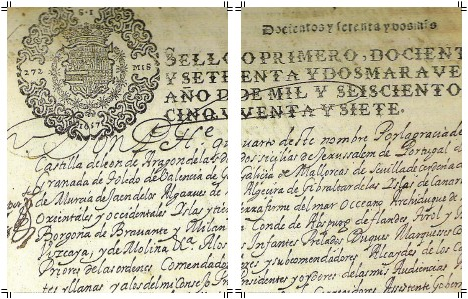 Docientos y setenta y dos mrs
S I
272 MIS
1657
SELLO PRIMERO, DOCIENT
Y SETENTA Y DOS MARAVE
AÑO DE MIL Y SEISCIENTO
CINQVENTA Y SIETE.
DON PHe quarto deste nombre Por la gracia de
Castilla de leon de Aragon de las dos sicilias de Jerussalem de Portugal de
Granada de Toledo de Valencia de Galicia de Mallorcas de Sevilla de Cerdeña
de Murcia de Jaen de los Algarves de Algecira de Gibraltar de las Islas de Canar
Orientales y occidentales Islas y tierra firme del mar Occeano Archiduque de
Borgoña de Bravante y Milan Conde de Abspurg de flandes tirol y
Vizcaya, y de Molina &a A los Infantes Prelados Duques Marqueses Co
Priores de las ordenes Comendadores y subcomendadores Alcaydes de los C
tes y llanas y a los del mi Consejo Presidentes y oydores de las mis Audiencias
Corregidores Asistente Gover